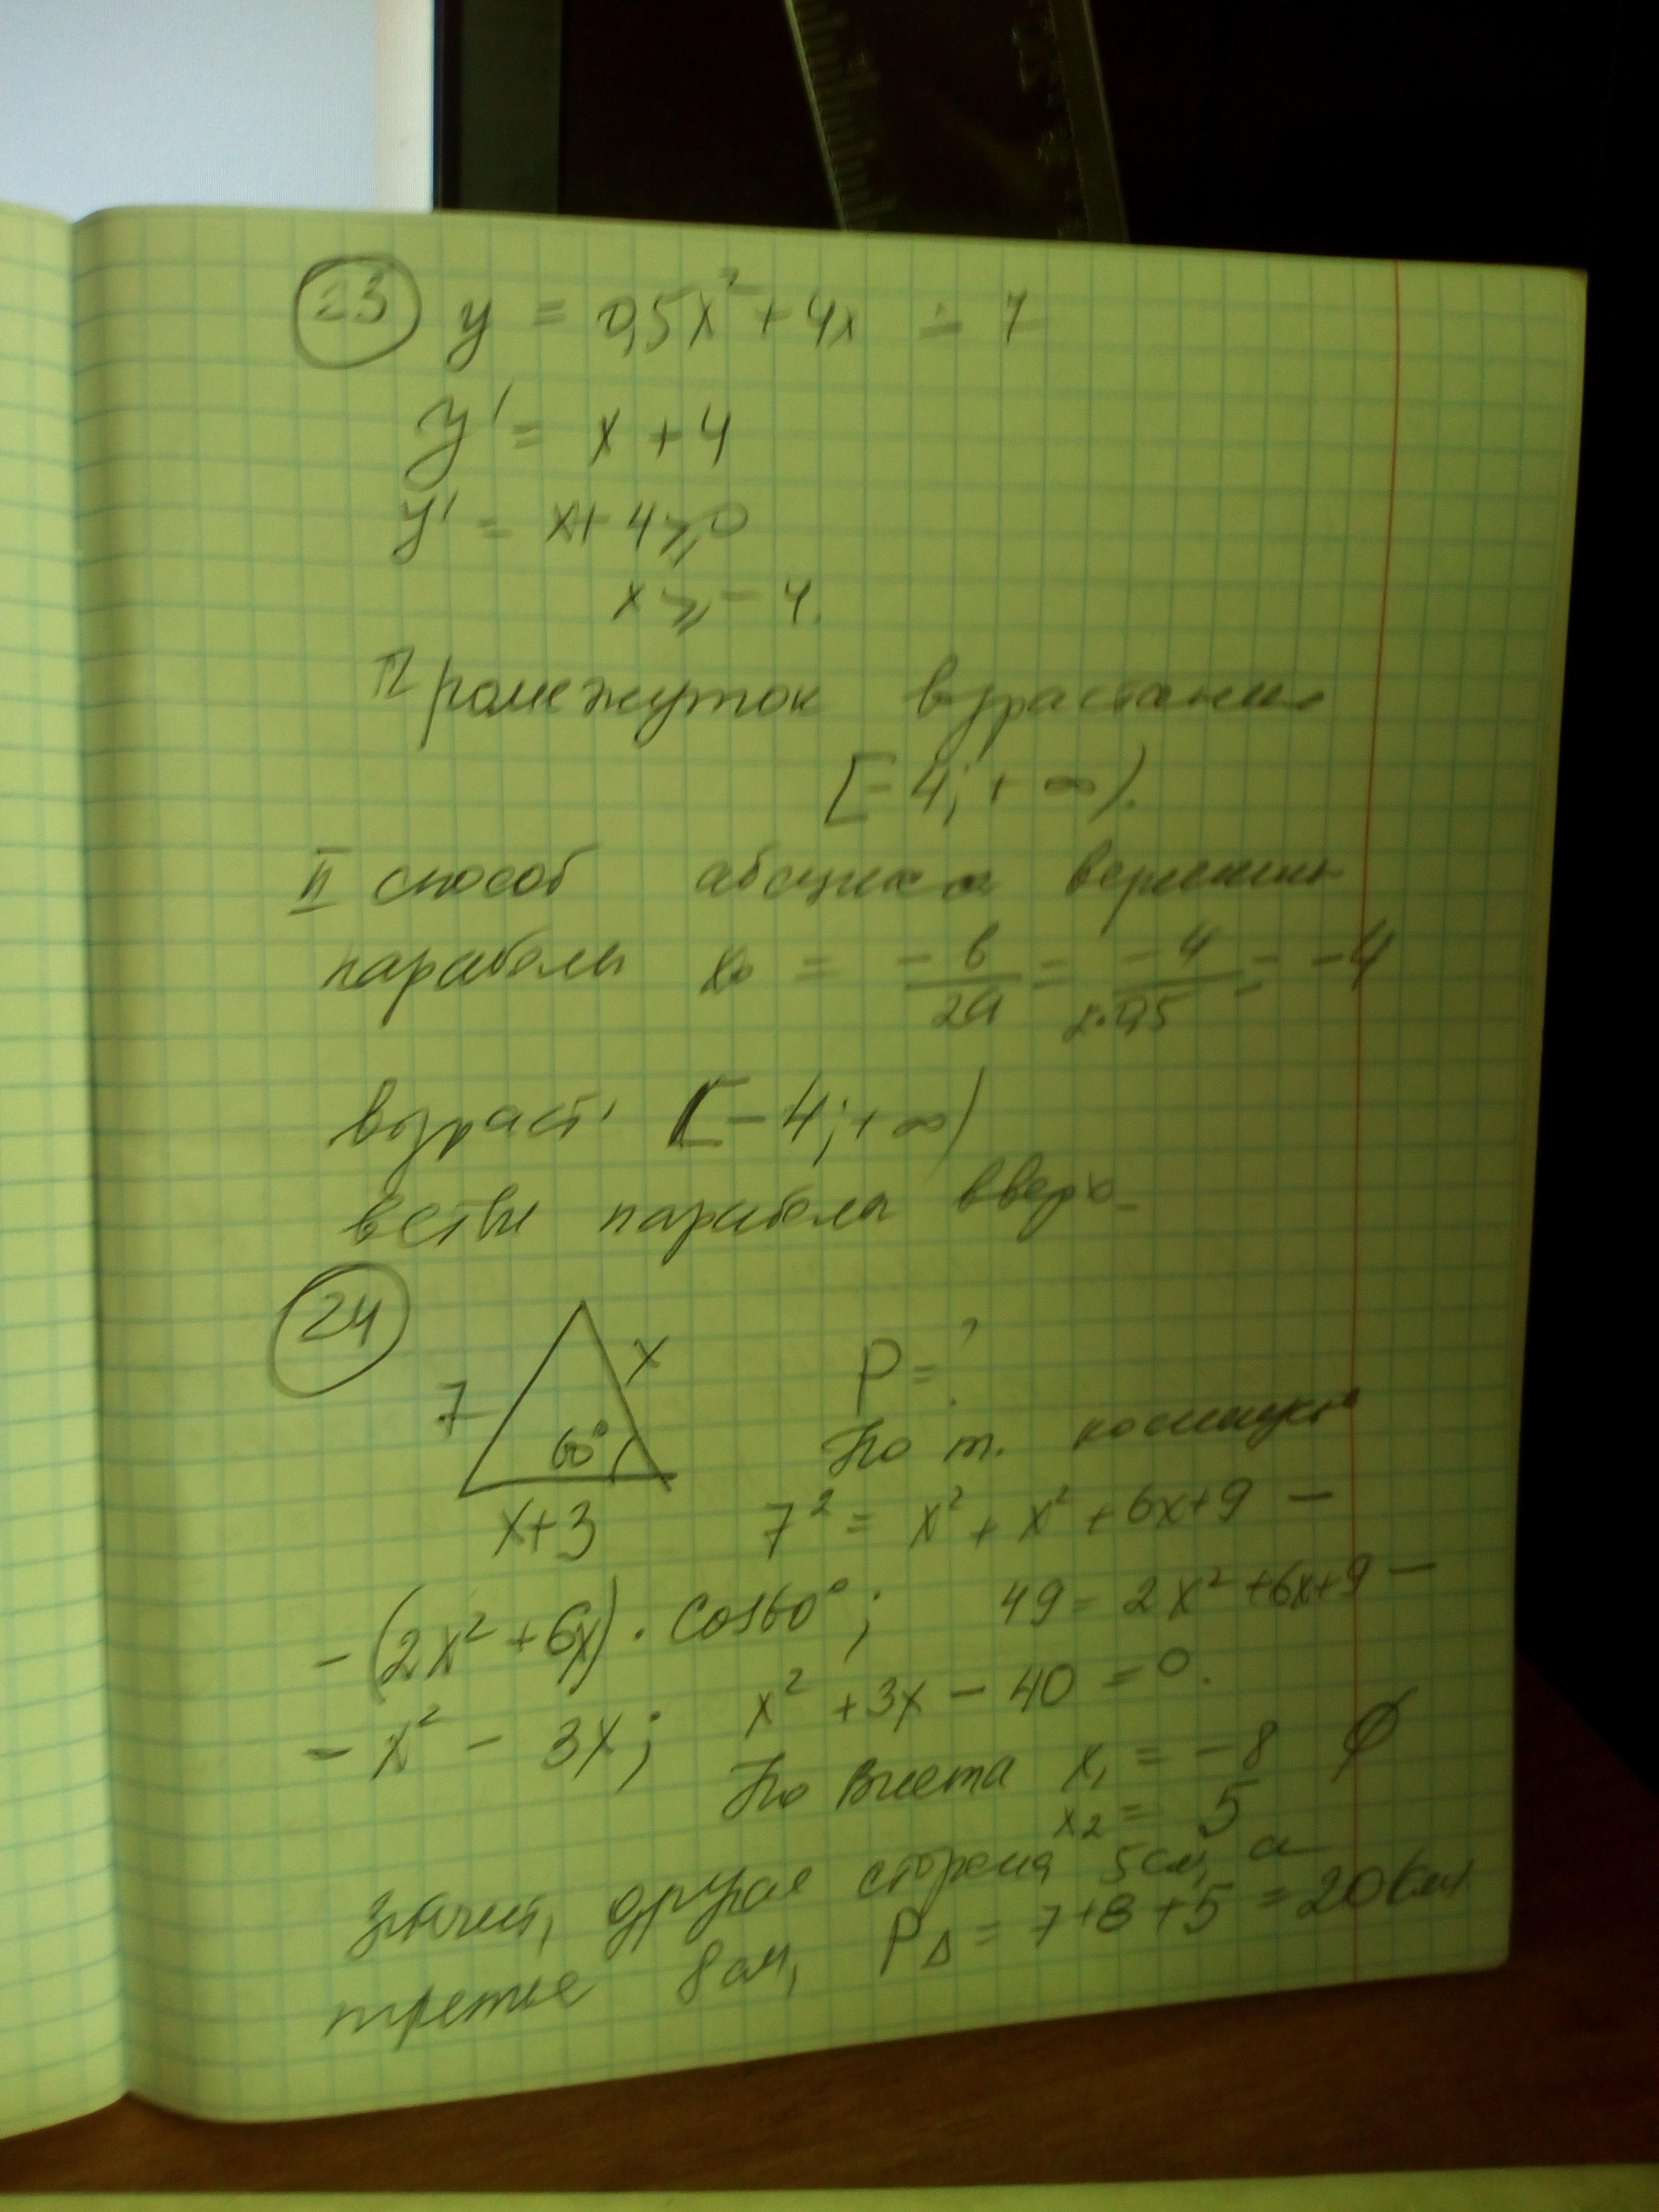 23 y = 0,5x² + 4x - 7
y' = x + 4
y' = x + 4 ⩾ 0
x ⩾ -4.
Промежуток взрастания
[-4; + ∞).
II способ абсцисса вершины
параболы x₀ = -в/2а = -4/2·0,5 = -4
возраст. [-4; +∞)
ветви параболы вверх
24 7 x 60° x+3 P = ?
По т. косинусов
7² = x² + x² + 6x + 9 -
- (2x² + 6x) · cos60°; 49 = 2x² + 6x + 9 -
- x² - 3x; x² + 3x - 40 = 0.
По Виета x₁ = -8 ∅
x₂ = 5
значит, другая сторона 5см, а
третья 8 см, P∆ = 7+8+5 = 20 (см)